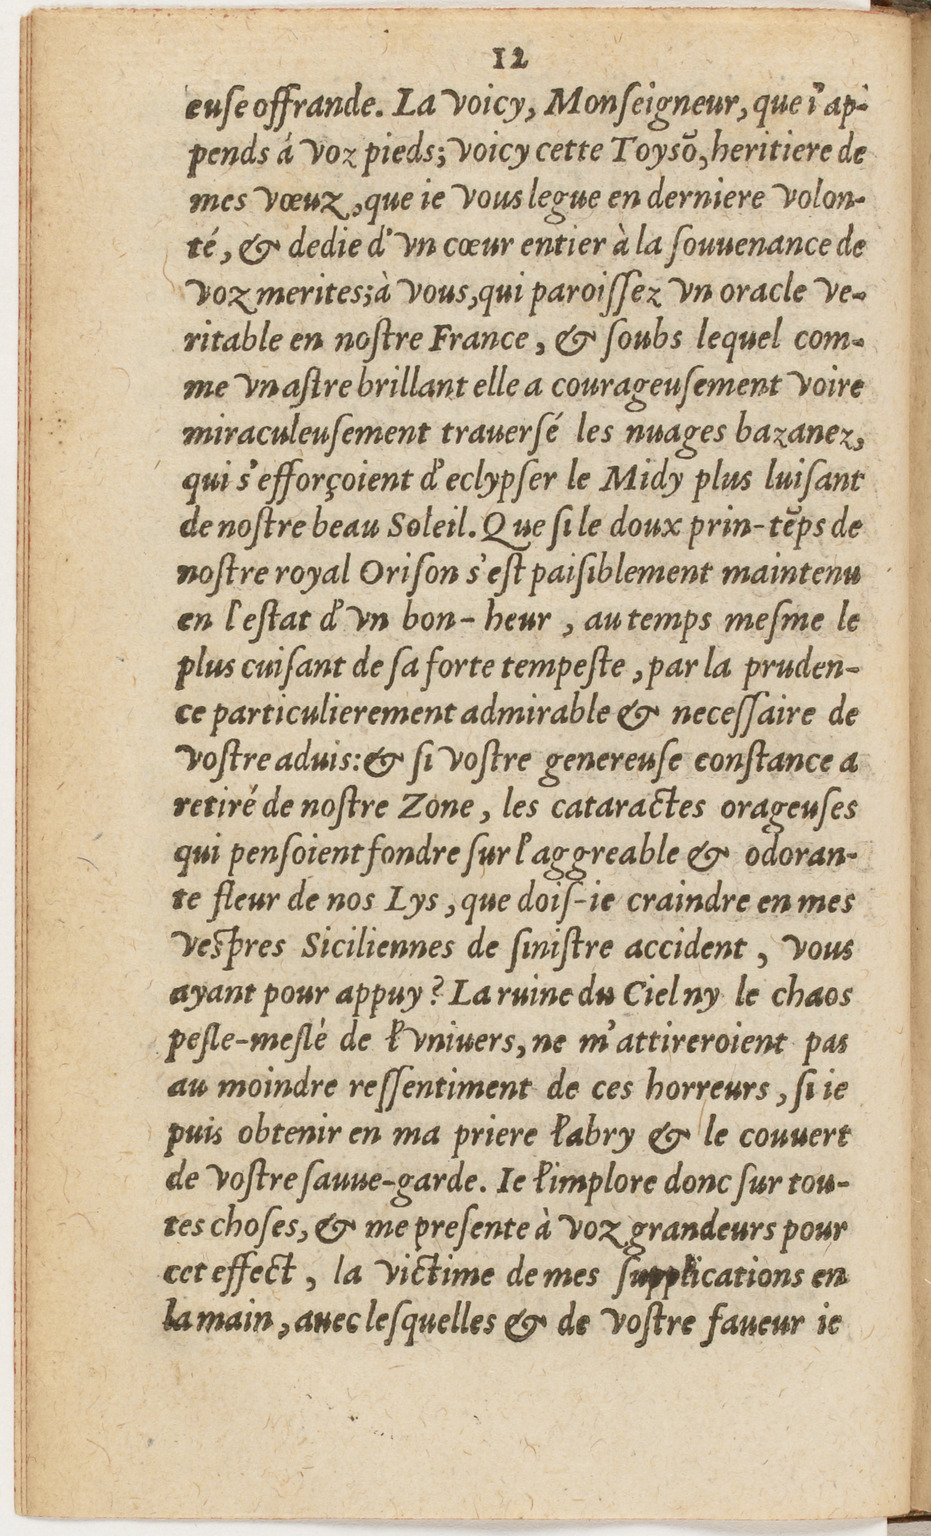 12
euſe offrande. La voicy, Monſeigneur, que i'ap-
pends á voz pieds; voicy cette Toysõ, heritiere de
mes vœuz, que ie vous legue en derniere volon-
té, & dedie d'vn cœur entier à la ſouuenance de
voz merites; à vous, qui paroiſſez vn oracle ve-
ritable en noſtre France, & ſoubs lequel com-
me vn aſtre brillant elle a courageuſement voire
miraculeuſement trauerſé les nuages bazanez,
qui s'efforçoient d'eclypſer le Midy plus luiſant
de noſtre beau Soleil. Que ſi le doux prin-tẽps de
noſtre royal Oriſon s'eſt paiſiblement maintenu
en l'eſtat d'vn bon-heur, au temps meſme le
plus cuiſant de ſa forte tempeſte, par la pruden-
ce particulierement admirable & neceſſaire de
voſtre aduis: & ſi voſtre genereuſe conſtance a
retiré de noſtre Zone, les cataractes orageuſes
qui penſoient fondre ſur l'aggreable & odoran-
te fleur de nos Lys, que doiſ-ie craindre en mes
veſpres Siciliennes de ſiniſtre accident, vous
ayant pour appuy? La ruine du Ciel ny le chaos
peſle-meſlé de l'vniuers, ne m'attireroient pas
au moindre reſſentiment de ces horreurs, ſi ie
puis obtenir en ma priere l'abry & le couuert
de voſtre ſauue-garde. Ie l'implore donc ſur tou-
tes choſes, & me preſente à voz grandeurs pour
cet effect, la victime de mes ſupplications en
la main, auec leſquelles & de voſtre faueur ie